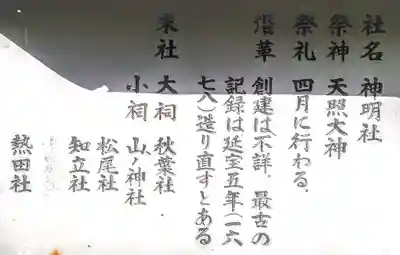 社名 神明社
祭神 天照大神
祭礼 四月に行わる。
沿革 創建は不詳。最古の
記録は延宝五年(一六
七八)造り直すとある
末社 大祠 秋葉社
小祠 山ノ神社
松尾社
知立社
熱田社